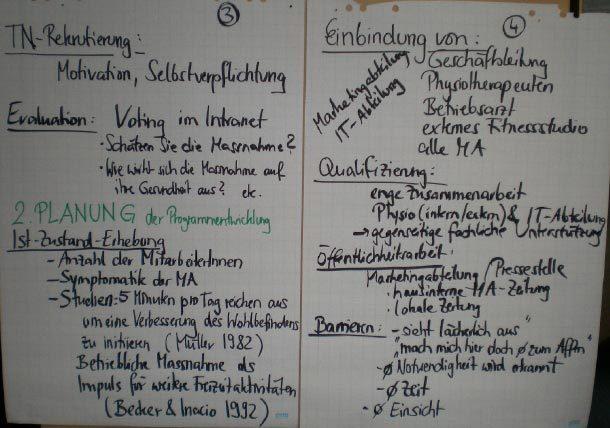 3
TN-Rekrutierung:
Motivation, Selbstverpflichtung
Evaluation: Voting im Intranet
· Schätzen Sie die Massnahme?
· Wie wirkt sich die Massnahme auf
ihre Gesundheit aus? etc.
2. PLANUNG der Programmentwicklung
Ist-Zustand-Erhebung
- Anzahl der MitarbeiterInnen
- Symptomatik der MA
- Studien: 5 Minuten pro Tag reichen aus
um eine Verbesserung des Wohlbefindens
zu initiieren (Müller 1982)
Betriebliche Massnahme als
Impuls für weitere Freizeitaktivitäten
(Becker & Inacio 1992)
4
Einbindung von:
Geschäftsleitung
Marketingabteilung
Physiotherapeuten
IT-Abteilung
Betriebsarzt
externes Fitnessstudio
alle MA
Qualifizierung:
enge Zusammenarbeit
Physio (intern/extern) & IT-Abteilung
→ gegenseitige fachliche Unterstützung
Öffentlichkeitsarbeit:
Marketingabteilung / Pressestelle
· hausinterne MA-Zeitung
· lokale Zeitung
Barrieren: - sieht lächerlich aus"
"mach mich hier doch Ø zum Affen"
- Ø Notwendigkeit wird erkannt
- Ø Zeit
- Ø Einsicht